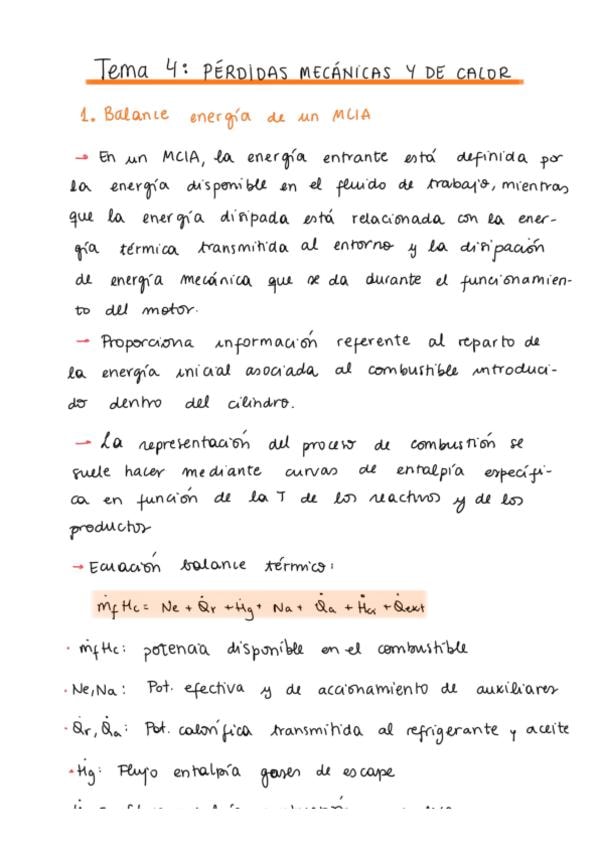 Tema 4: PÉRDIDAS MECÁNICAS Y DE CALOR
1. Balance energía de un MCIA
→ En un MCIA, la energía entrante está definida por
la energía disponible en el fluido de trabajo, mientras
que la energía disipada está relacionada con la ener-
gía térmica transmitida al entorno y la disipación
de energía mecánica que se da durante el funcionamien-
to del motor.
→ Proporciona información referente al reparto de
la energía inicial asociada al combustible introduci-
do dentro del cilindro.
→ La representación del proceso de combustión se
suele hacer mediante curvas de entalpía específi-
ca en función de la T de los reactivos y de los
productos
→ Ecuación balance térmico:
ṁf Hc = Ne + Q̇r + Ḣg + Na + Q̇a + Ḣci + Q̇ext
· ṁf Hc: potencia disponible en el combustible
· Ne, Na: Pot. efectiva y de accionamiento de auxiliares
· Q̇r, Q̇a: Pot. calorífica transmitida al refrigerante y aceite
· Ḣg: Flujo entalpía gases de escape